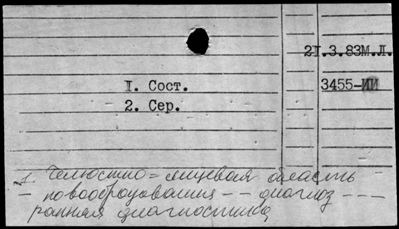 21.3.83М.Л.
1. Сост.
3455-ИИ
2. Сер.
1. Челюстно=лицевая область
- новообразования -- диагноз ---
ранняя диагностика